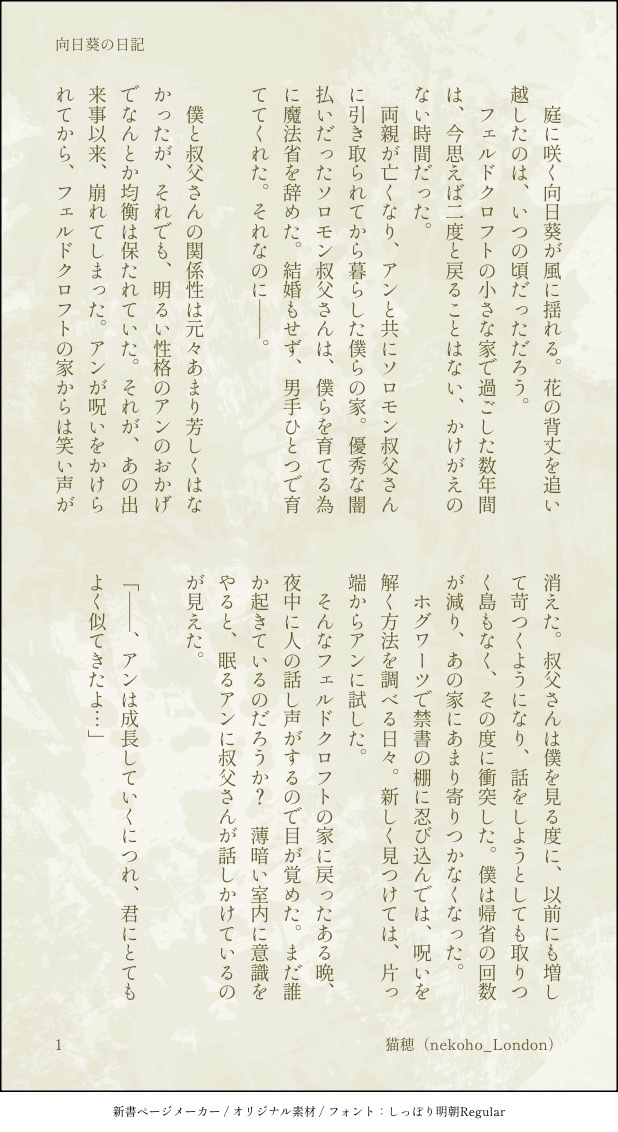 向日葵の日記
庭に咲く向日葵が風に揺れる。花の背丈を追い
越したのは、いつの頃だっただろう。
フェルドクロフトの小さな家で過ごした数年間
は、今思えば二度と戻ることはない、かけがえの
ない時間だった。
両親が亡くなり、アンと共にソロモン叔父さん
に引き取られてから暮らした僕らの家。優秀な闇
払いだったソロモン叔父さんは、僕らを育てる為
に魔法省を辞めた。結婚もせず、男手ひとつで育
ててくれた。それなのに――。
僕と叔父さんの関係性は元々あまり芳しくはな
かったが、それでも、明るい性格のアンのおかげ
でなんとか均衡は保たれていた。それが、あの出
来事以来、崩れてしまった。アンが呪いをかけら
れてから、フェルドクロフトの家からは笑い声が
消えた。叔父さんは僕を見る度に、以前にも増し
て苛つくようになり、話をしようとしても取りつ
く島もなく、その度に衝突した。僕は帰省の回数
が減り、あの家にあまり寄りつかなくなった。
ホグワーツで禁書の棚に忍び込んでは、呪いを
解く方法を調べる日々。新しく見つけては、片っ
端からアンに試した。
そんなフェルドクロフトの家に戻ったある晩、
夜中に人の話し声がするので目が覚めた。まだ誰
か起きているのだろうか？　薄暗い室内に意識を
やると、眠るアンに叔父さんが話しかけているの
が見えた。
「――、アンは成長していくにつれ、君にとても
よく似てきたよ…」
1
猫穂（nekoho_London）
新書ページメーカー / オリジナル素材 / フォント：しっぽり明朝Regular